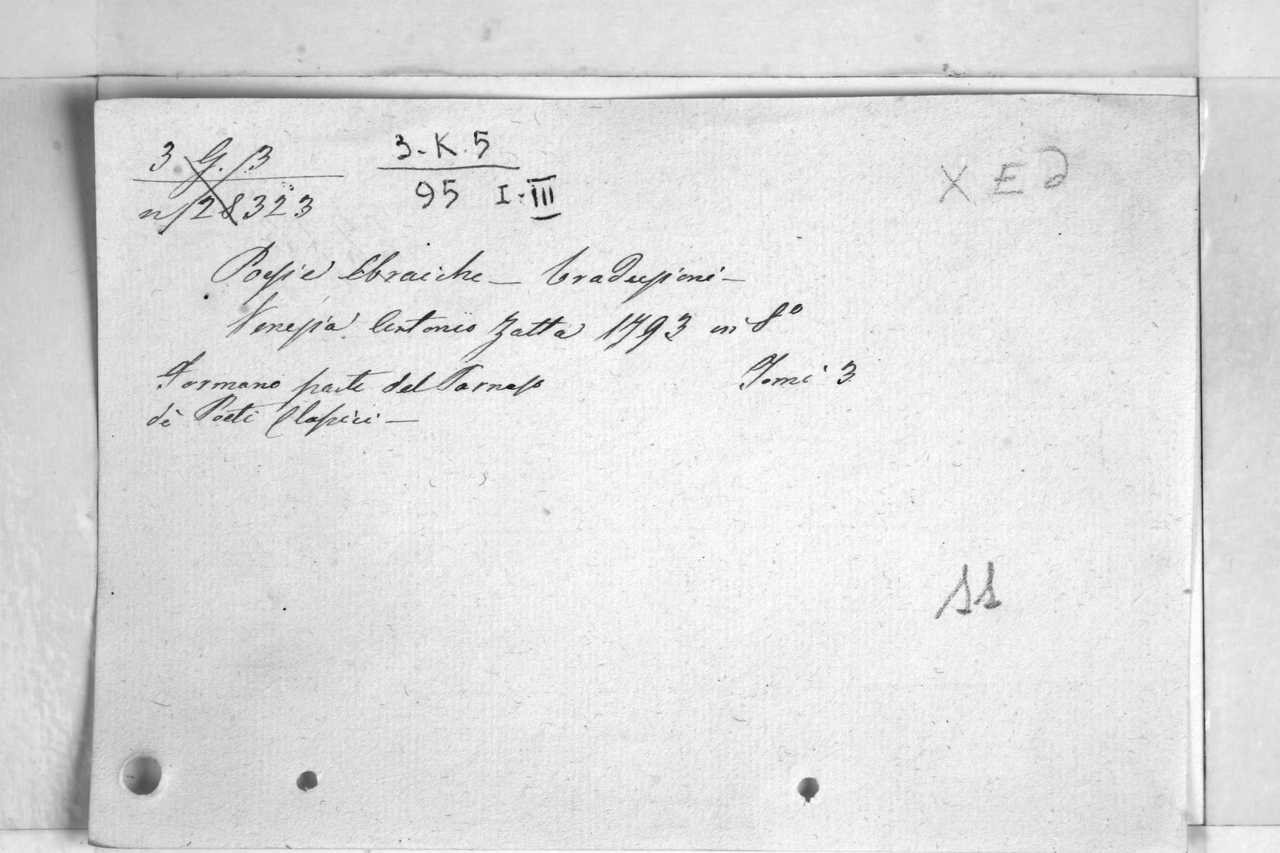 3 G. 3
n/28323
3-K.5
95 I-III
X E d
Poesie Ebraiche — traduzioni —
Venezia Antonio Zatta 1793 in 8º
Formano parte del Parnaso Tomi 3
dè Poeti Classici —